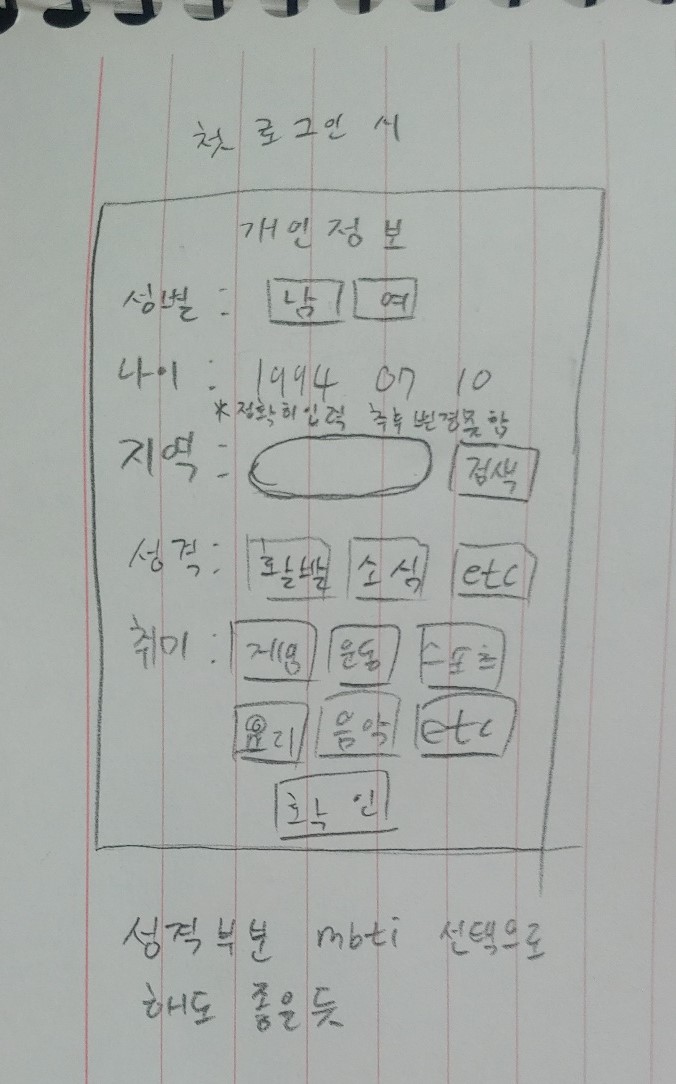 첫 로그인 시
개인정보
성별 : 남 여
나이 : 1994 07 10
*정확히입력 추후 변경못함
지역 : 검색
성격 : 활발 소심 etc
취미 : 게임 운동 스포츠
요리 음악 etc
확인
성격부분 mbti 선택으로
해도 좋을듯